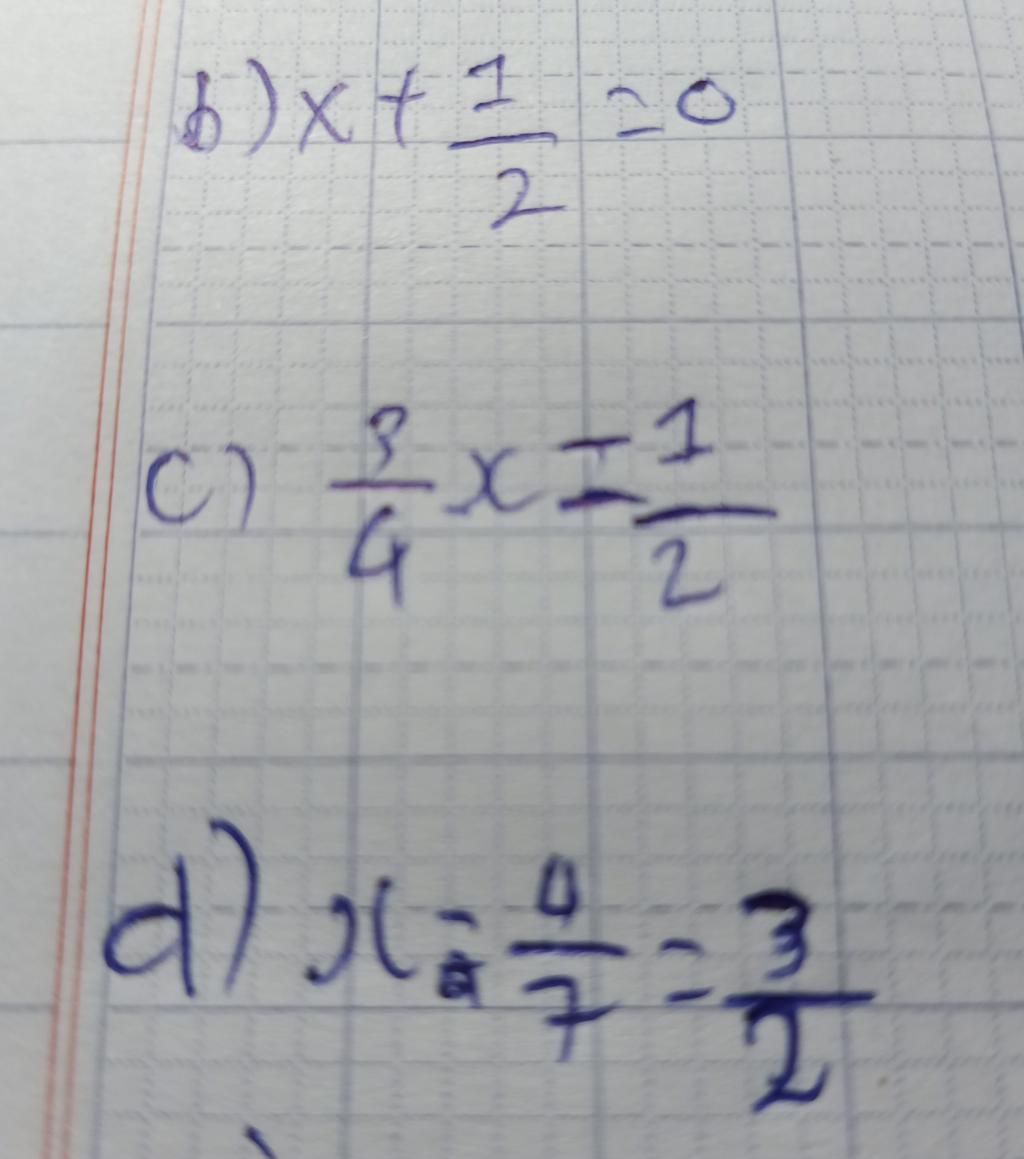 b) x + 1/2 = 0
c) 3/4 x = 1/2
d) x - 4/7 = 3/2